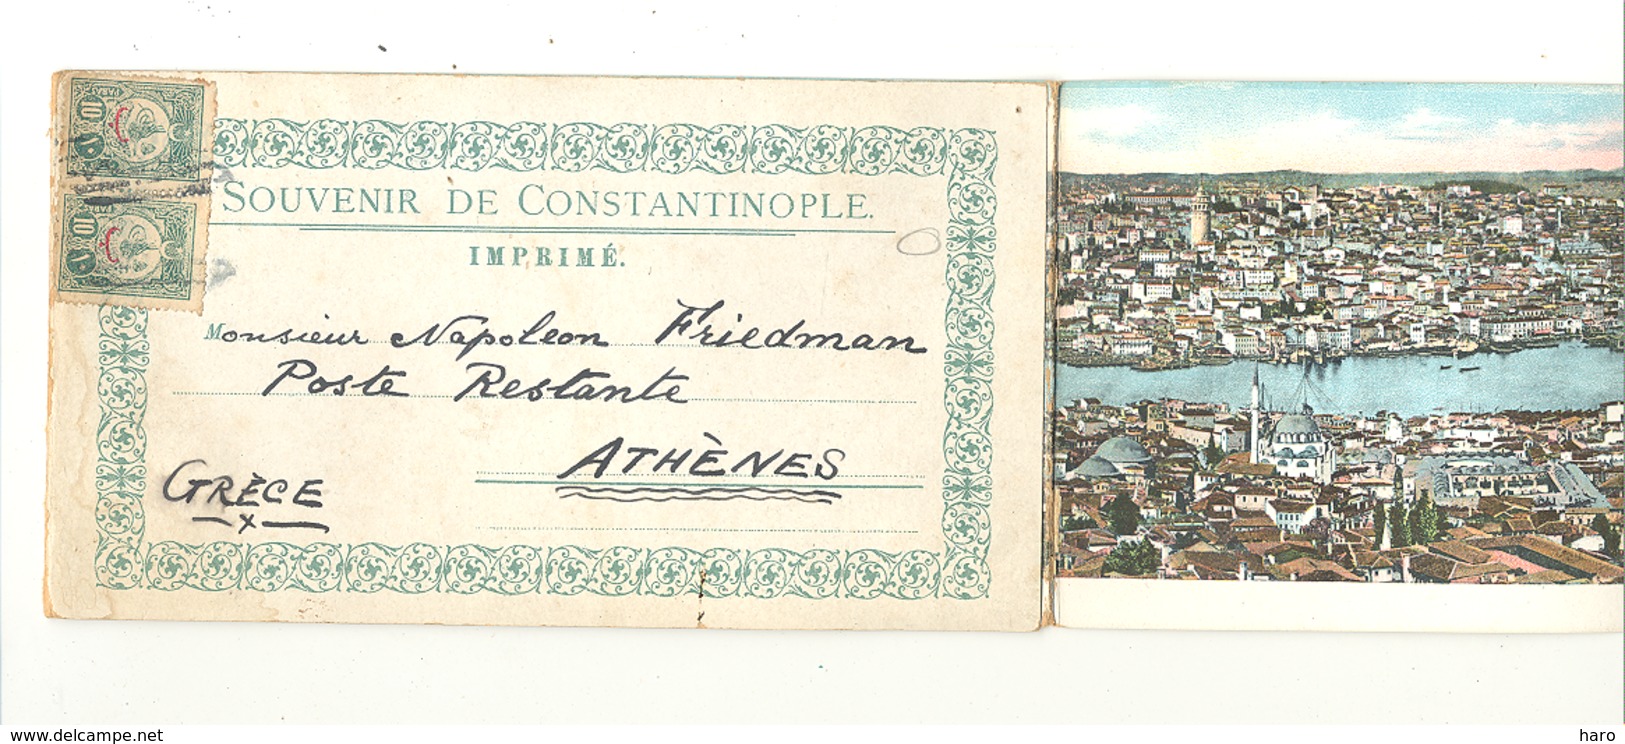 10
PARAS
١٠
10
PARAS
١٠
SOUVENIR DE CONSTANTINOPLE.
IMPRIMÉ.
Monsieur Napoleon Friedman
Poste Restante
ATHÈNES
GRÈCE
www.delcampe.net
haro